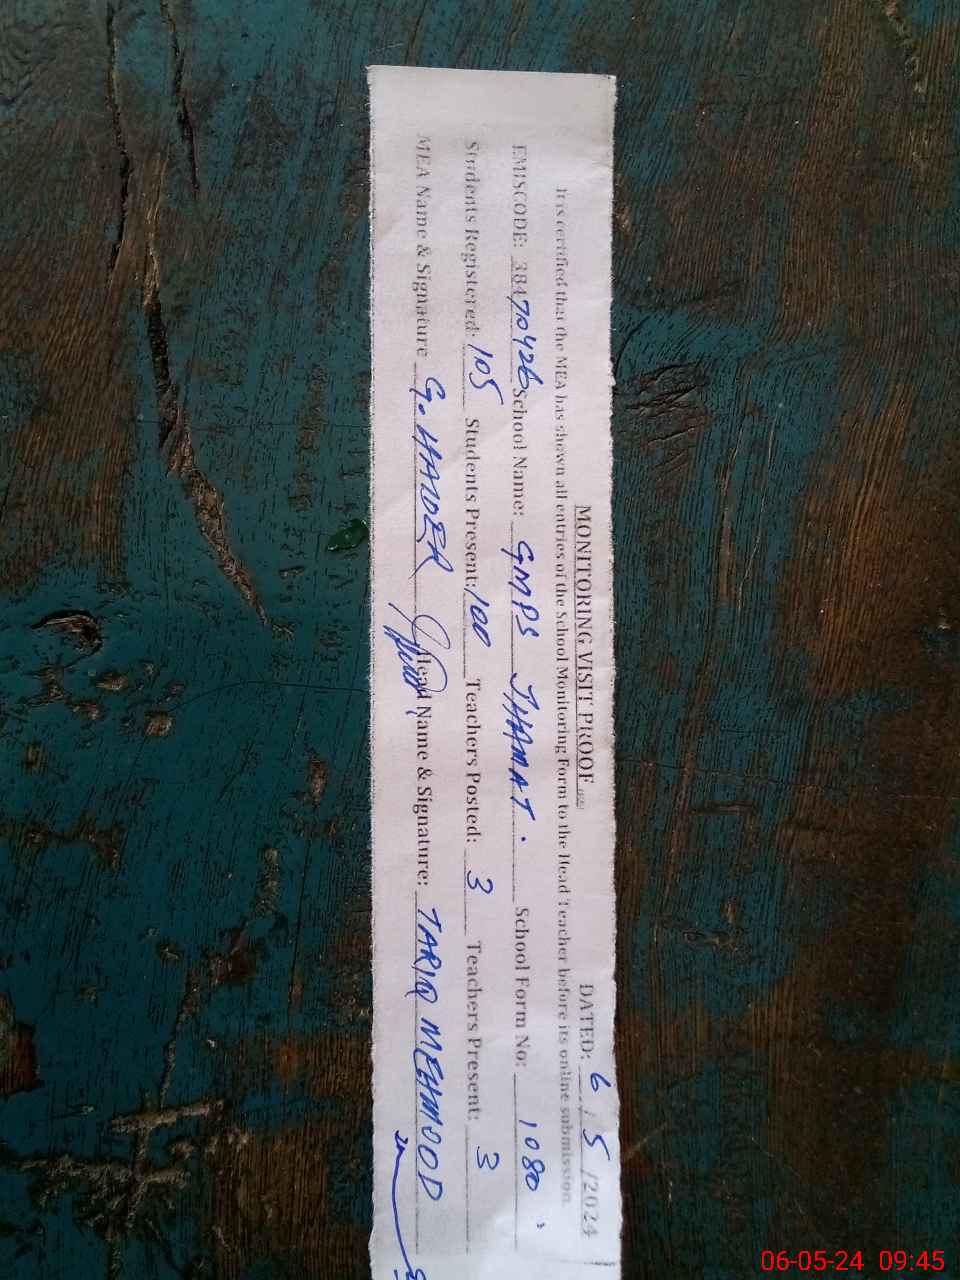 MONITORING VISIT PROOF DATED: 6 / 5 /2024
It is certified that the MEA has shown all entries of the School Monitoring Form to the Head Teacher before its online submission.
EMISCODE: 38470426 School Name: GMPS JHAMAT. School Form No: 1080
Students Registered: 105 Students Present: 100 Teachers Posted: 3 Teachers Present: 3
MEA Name & Signature G. HAIDER Head Name & Signature: TARIQ MEHMOOD
06-05-24 09:45